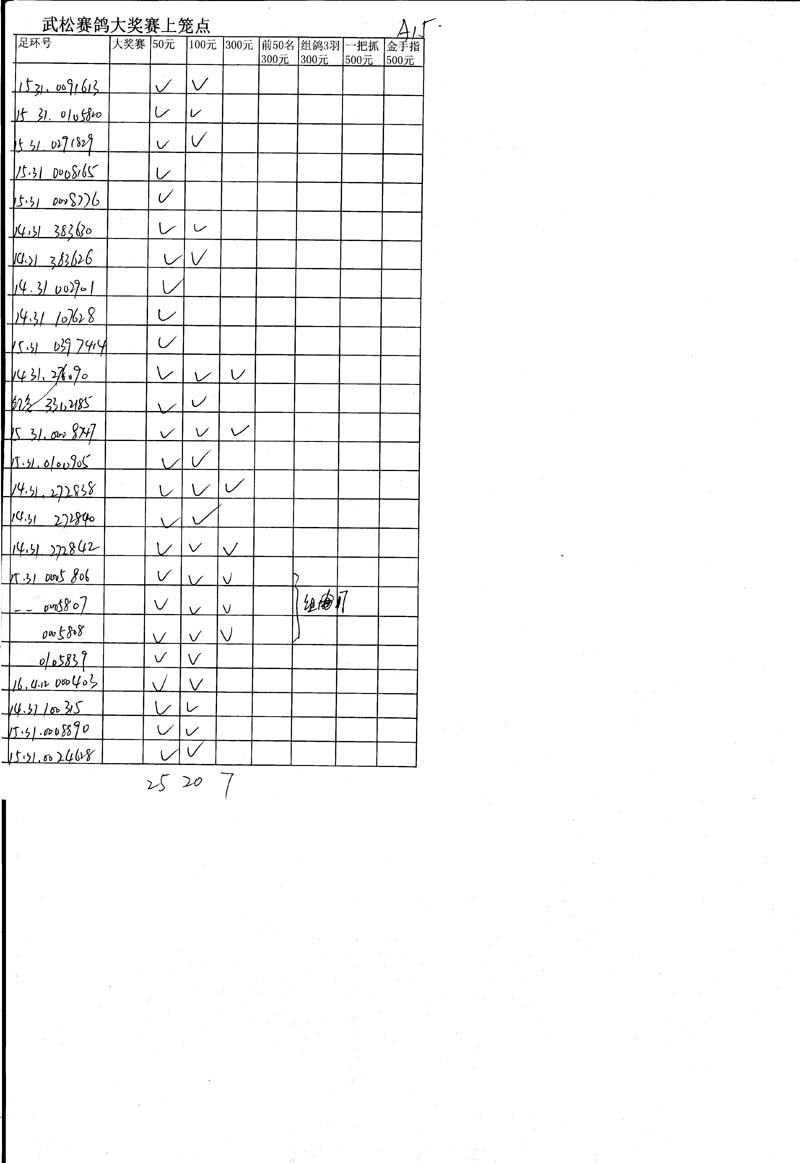 武松赛鸽大奖赛上笼点 A15
足环号 大奖赛 50元 100元 300元 前50名300元 组鸽3羽300元 一把抓500元 金手指500元
15 31.0091613 ✓ ✓
15 31.0105820 ✓ ✓
15 31.0291829 ✓ ✓
15.31 0008165 ✓
15.31 0008776 ✓
14.31 383630 ✓ ✓
14.31 383626 ✓ ✓
14.31 002901 ✓
14.31 107628 ✓
15.31 0397414 ✓
14 31. ✓ ✓ ✓
331,2185 ✓ ✓
15 31.0008747 ✓ ✓ ✓
15.31.0100905 ✓ ✓
14.31.272838 ✓ ✓ ✓
14.31 272840 ✓ ✓
14.31 272842 ✓ ✓ ✓
15.31 0005806 ✓ ✓ ✓
-- 0005807 ✓ ✓ ✓ 组
0005808 ✓ ✓ ✓
0105839 ✓ ✓
16.4.12 000403 ✓ ✓
14.31 100315 ✓ ✓
15.31.0008890 ✓ ✓
15.31.0024628 ✓ ✓
25 20 7